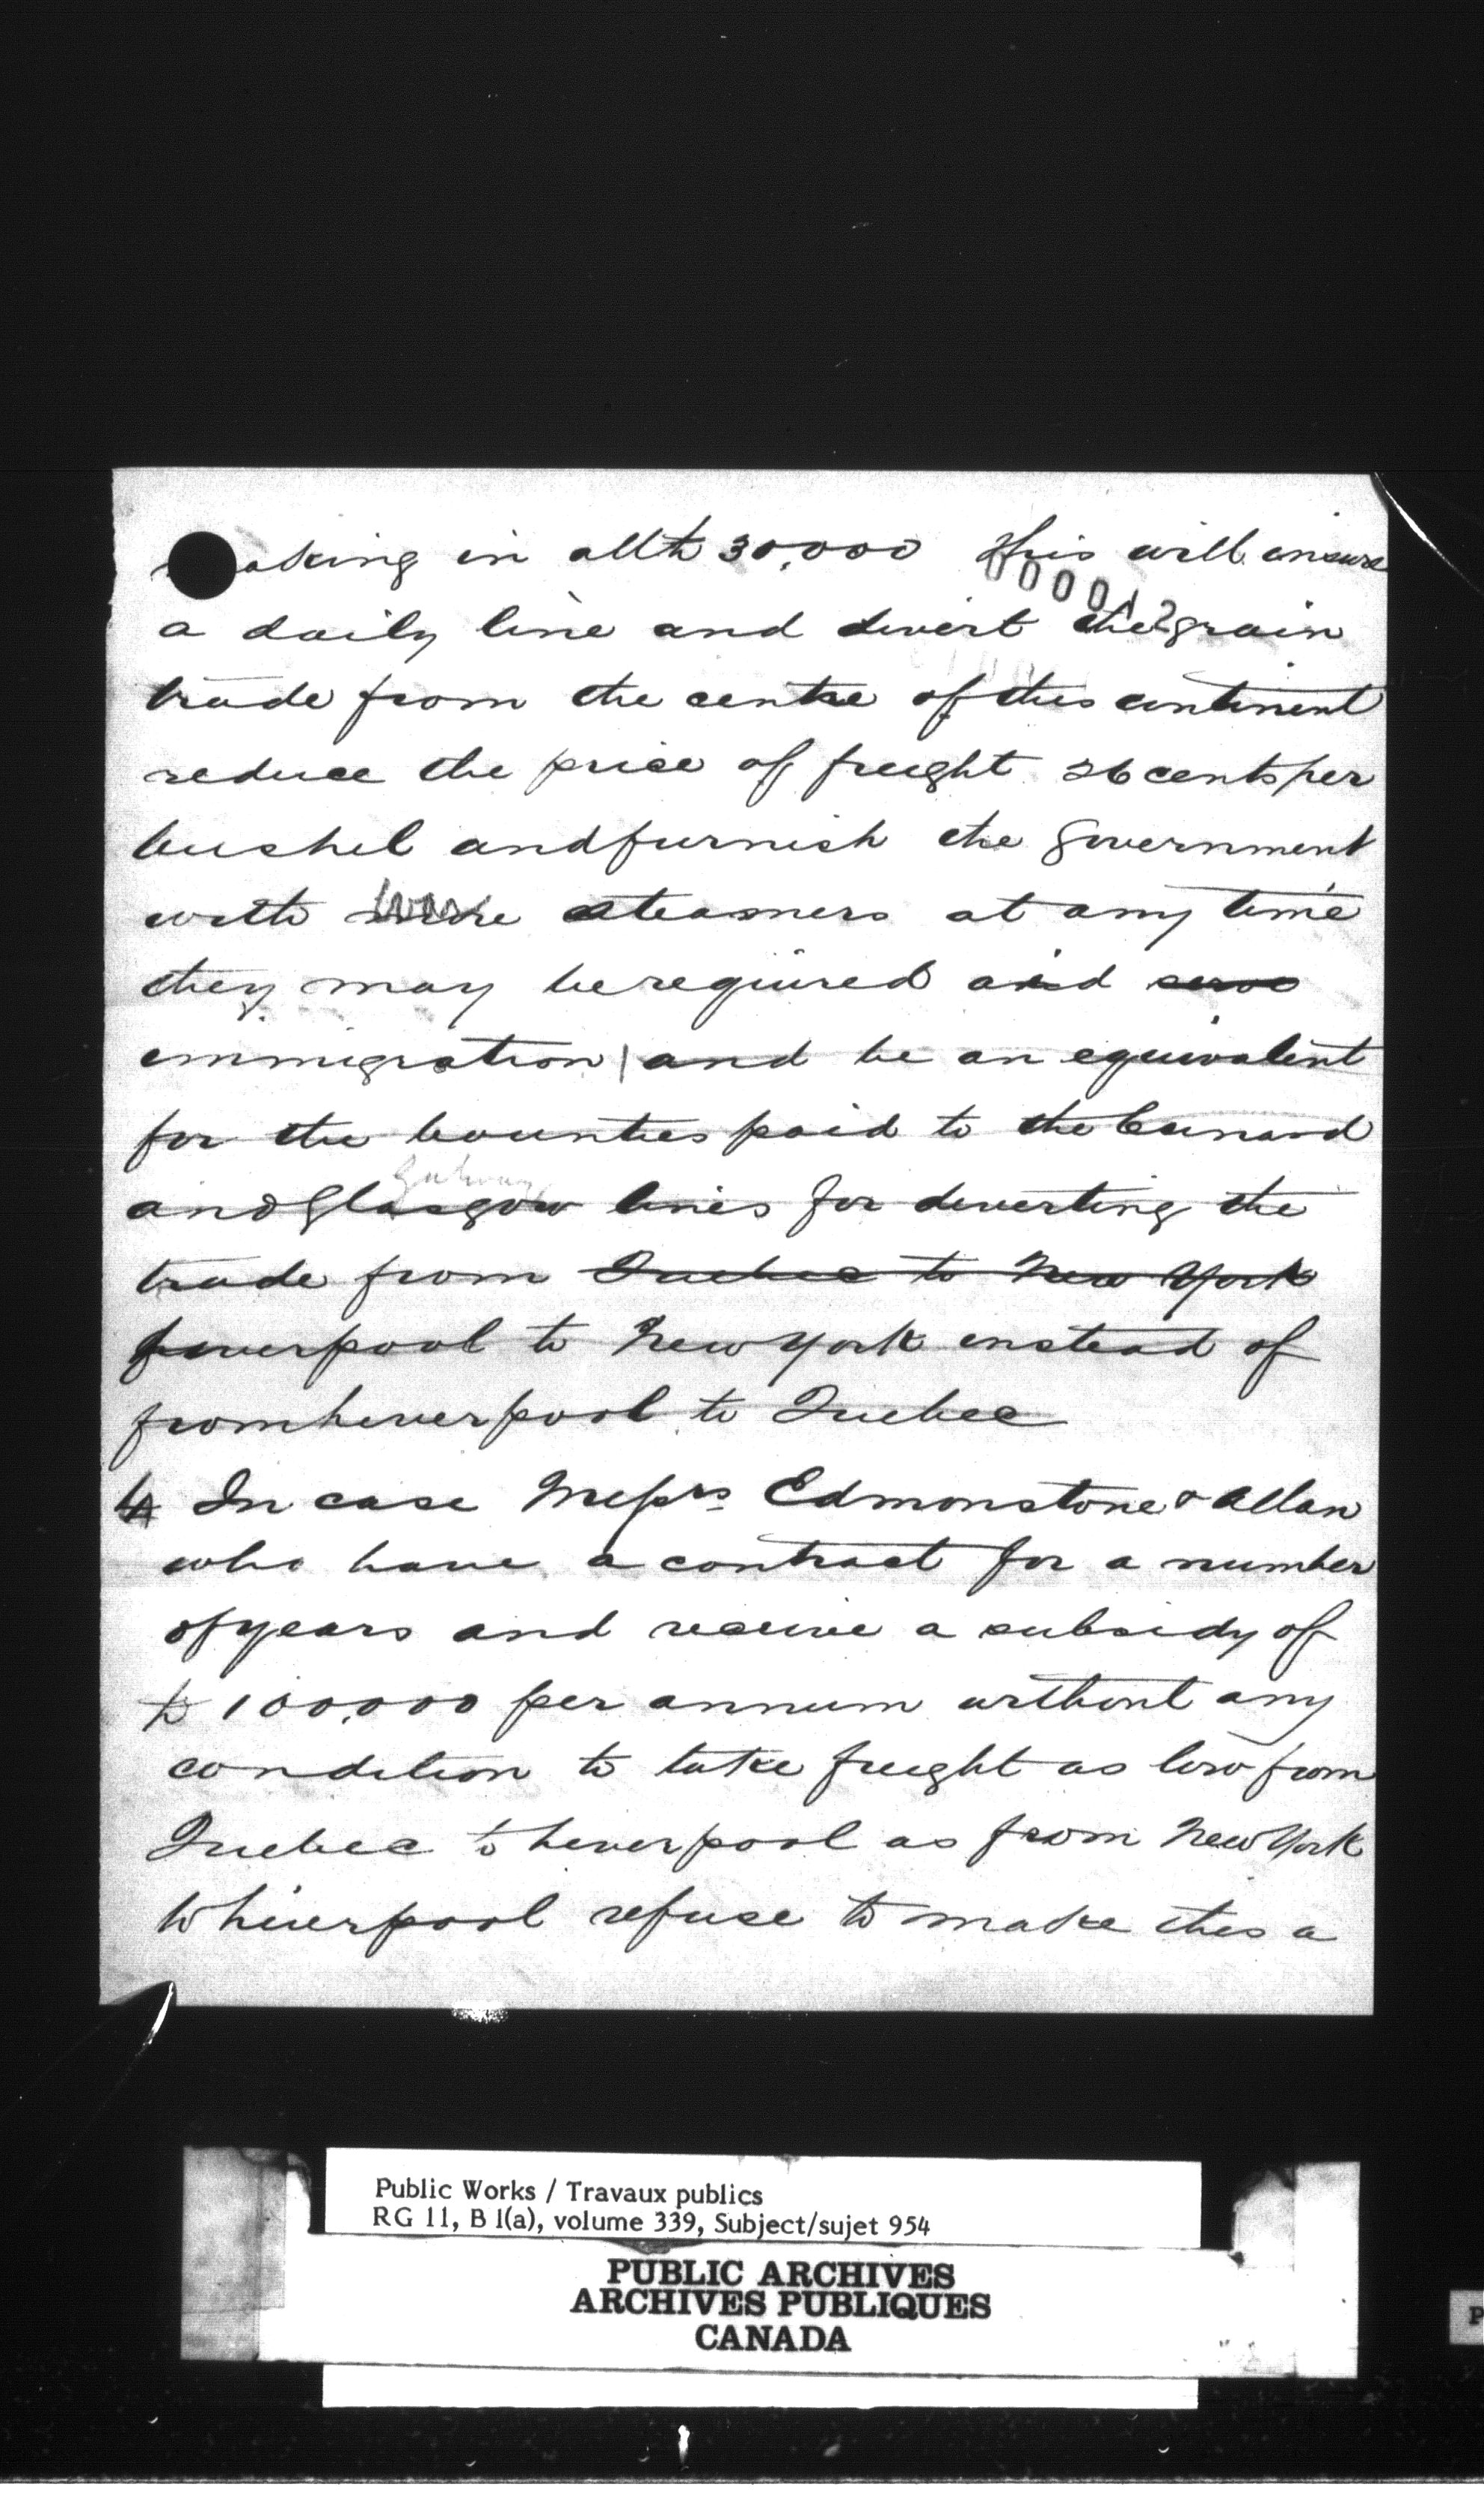 making in all to 30,000 This will insure
000012
a daily line and divert the grain
trade from the centre of this continent
reduce the price of freight 26 cents per
bushel and furnish the Government
with steamers at any time
they may be required and serve
immigration and be an equivalent
for the bounties paid to the Cunard
Galway
and Glasgow lines for diverting the
trade from Quebec to New York
Liverpool to New York instead of
from Liverpool to Quebec
4 In case Messrs Edmonstone & Allan
who have a contract for a number
of years and receive a subsidy of
100,000 per annum without any
condition to take freight as low from
Quebec to Liverpool as from New York
to Liverpool refuse to make this a
Public Works / Travaux publics
RG 11, B 1(a), volume 339, Subject/sujet 954
PUBLIC ARCHIVES
ARCHIVES PUBLIQUES
CANADA
P